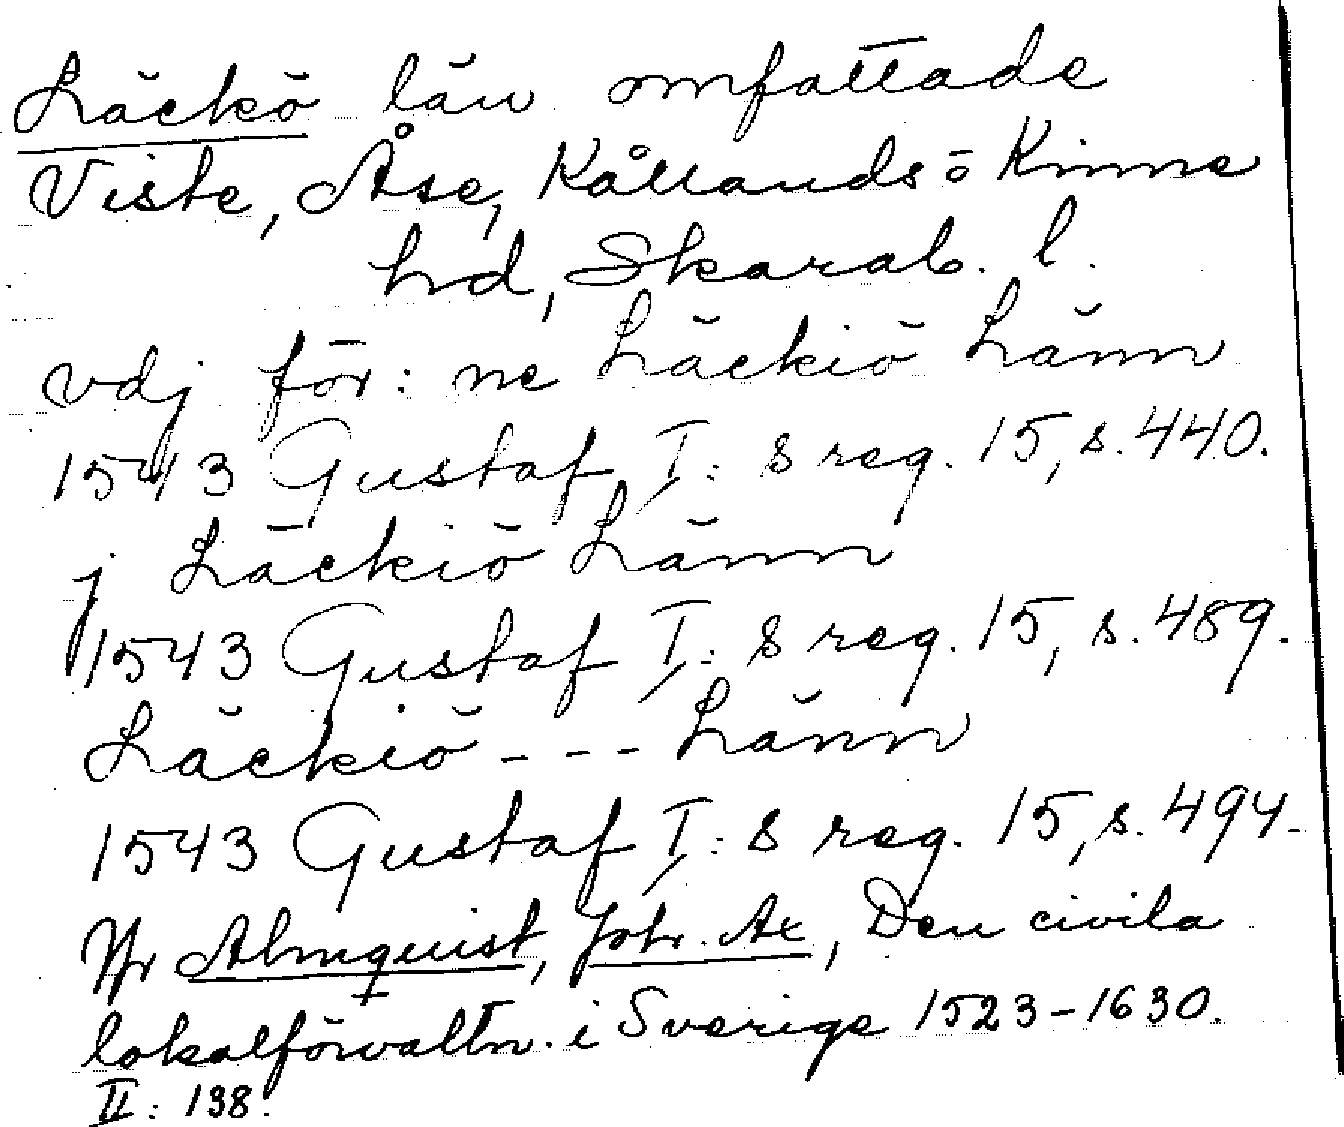 Läckö län omfattade
Viste, Åse, Kållands o Kinne
hd, Skarab. l.
vdj för:ne Läckiö Länn
1543 Gustaf I:s reg. 15, s. 440.
j Läckiö Länn
1543 Gustaf I:s reg. 15, s. 489.
Läckiö --- Länn
1543 Gustaf I:s reg. 15, s. 494.
Jfr Almquist, Joh. Ax, Den civila
lokalförvaltn. i Sverige 1523-1630.
II: 138.